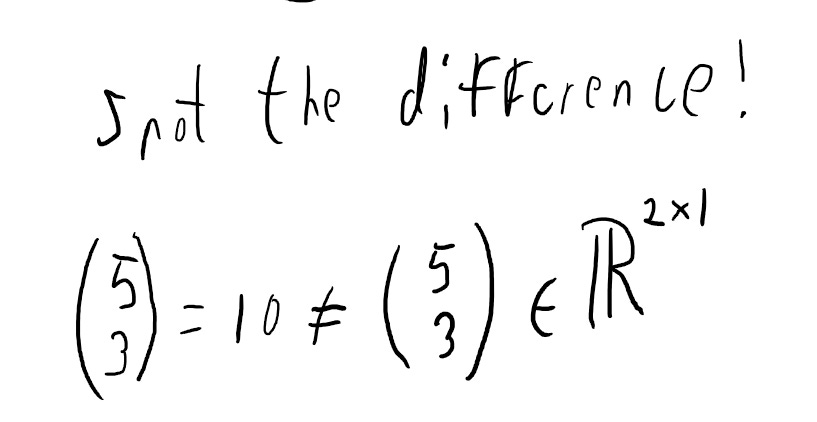 spot the difference!
(5 3) = 10 ≠ (5 3) ∈ ℝ^2×1